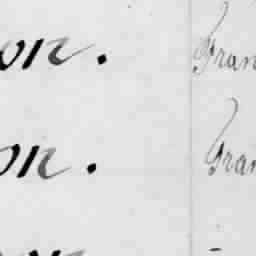 on. Fran
on. Fran